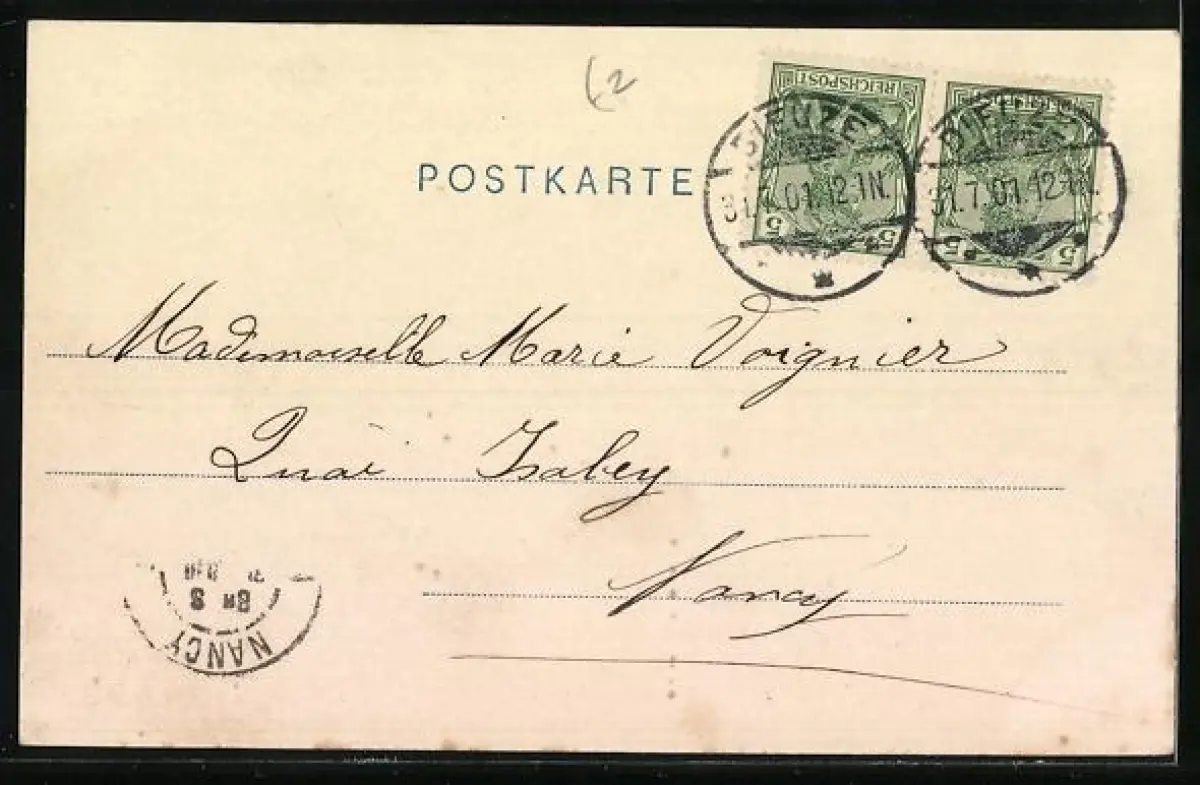 (2
REICHSPOST
5 5
5 5
DIEUZE
31.7.01.12-1N.
DIEUZE
31.7.01.12-1N.
POSTKARTE
Mademoiselle Marie Voignier
Quai Isabey
Nancy
NANCY
8E S